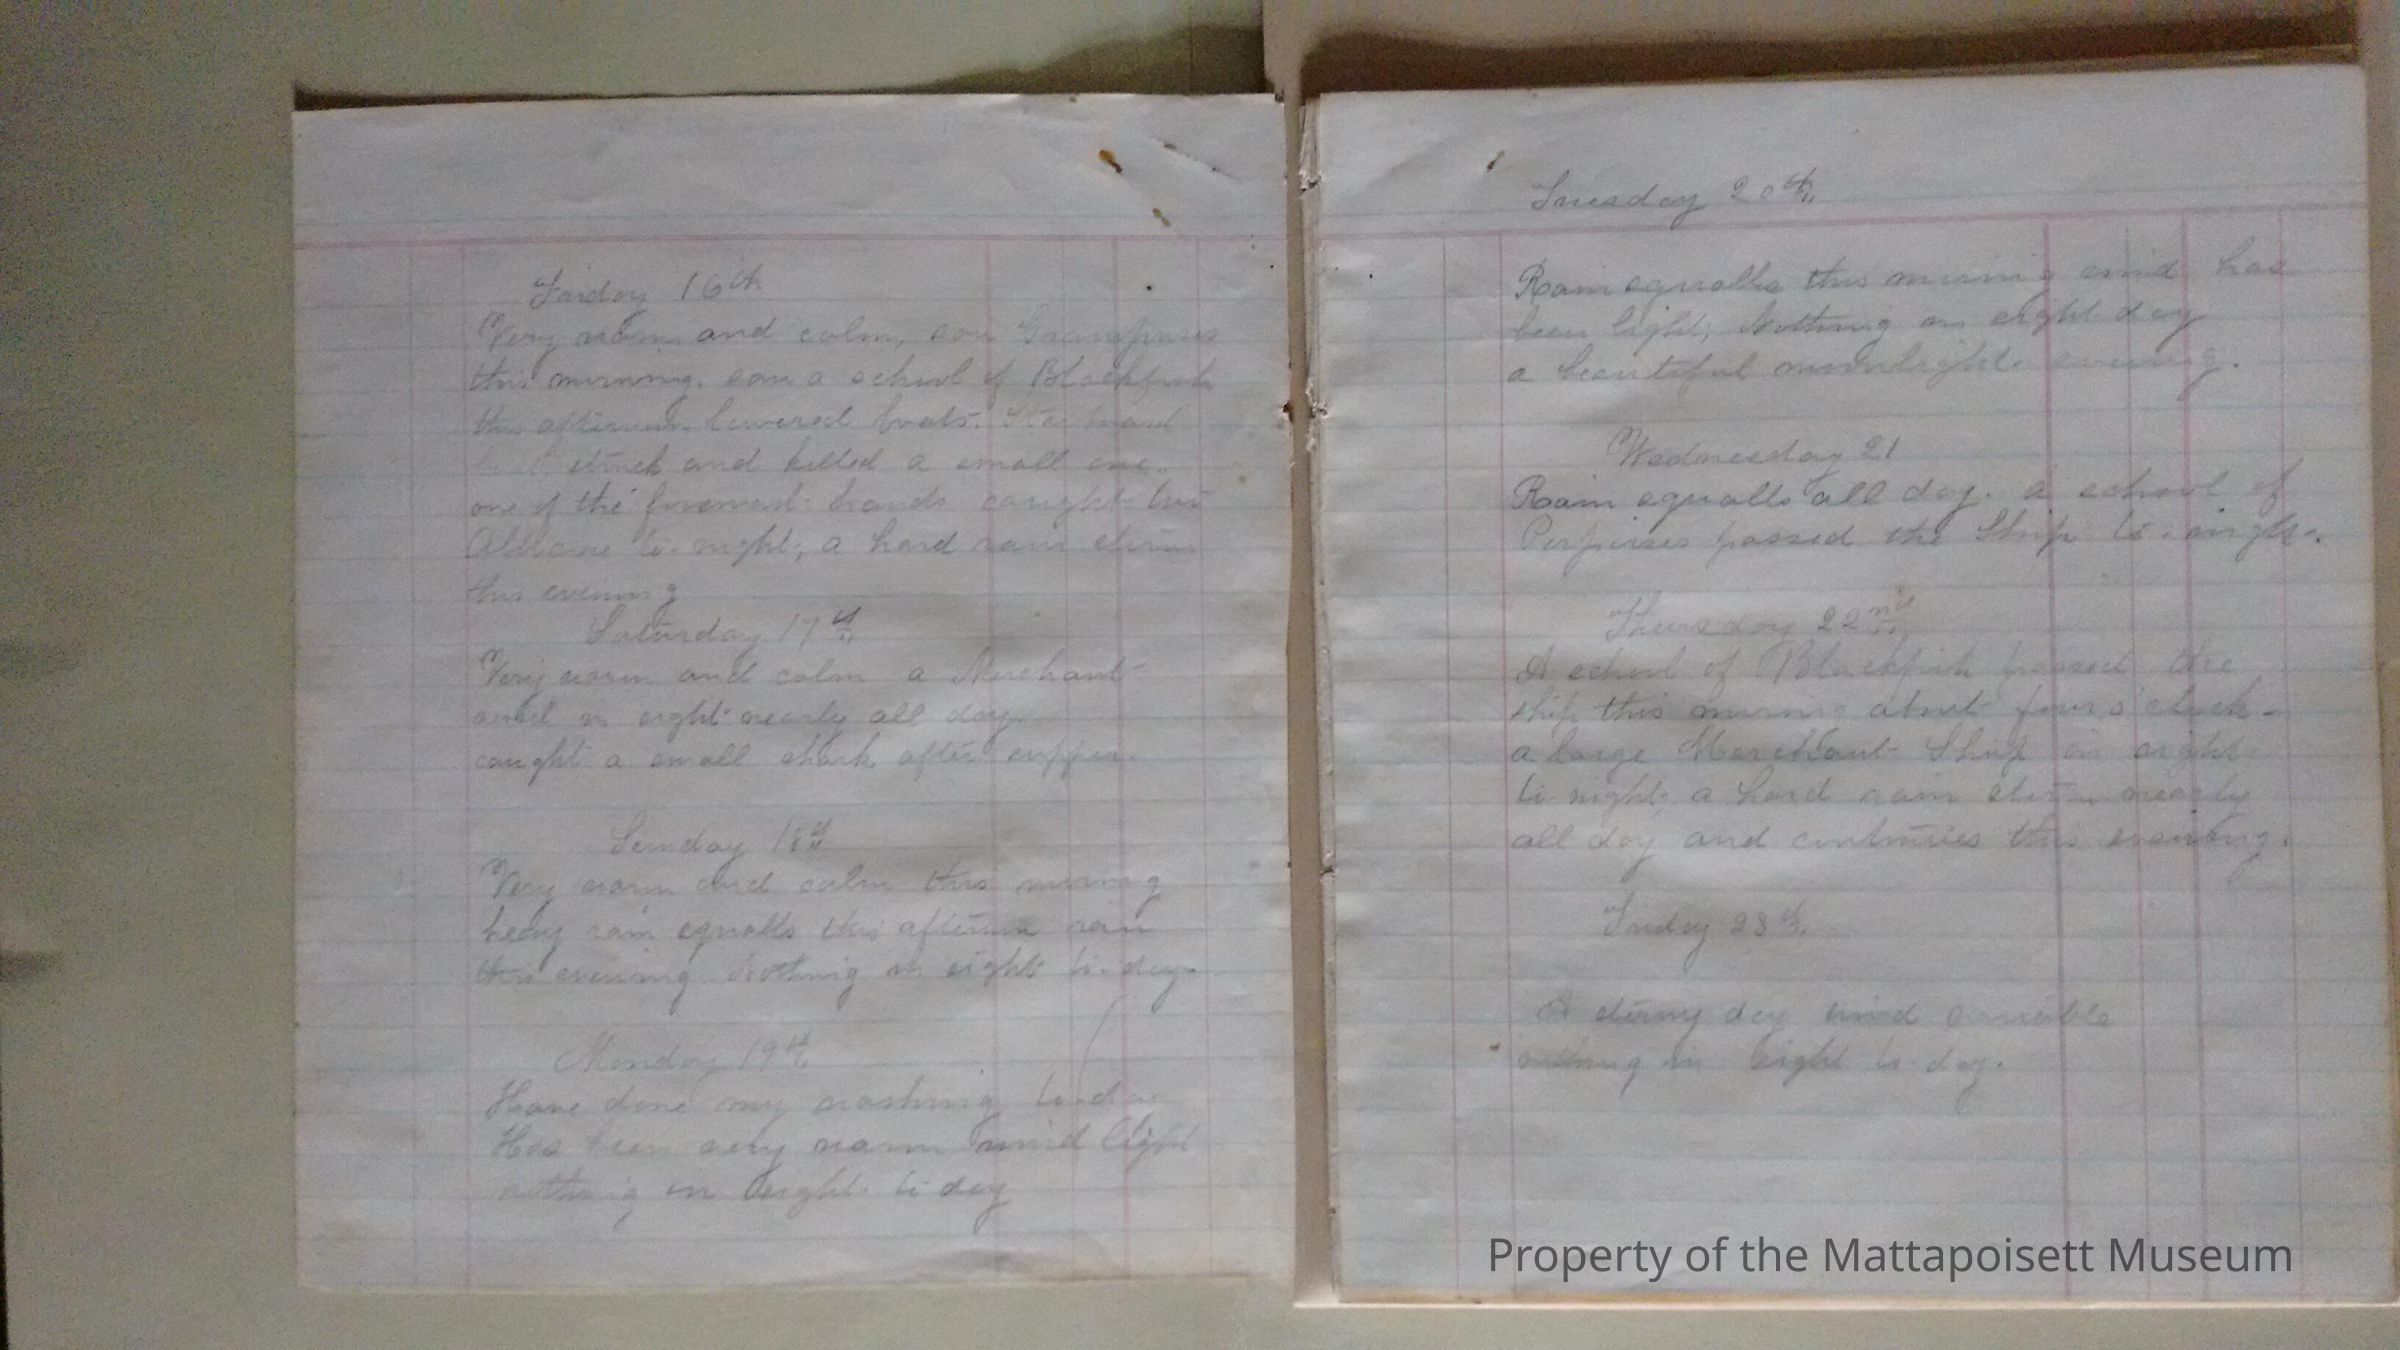 Friday 16th
Very warm and calm, saw Grampuses
this morning. saw a school of Blackfish
this afternoon lowered boats. Starboard
boat struck and killed a small one.
one of the foremast hands caught two
to-night; a hard rain storm
this evening
Saturday 17th
Very warm and calm a Merchant
vessel in sight nearly all day.
caught a small shark after supper.
Sunday 18th
Very warm and calm this morning
heavy rain squalls this afternoon rain
this evening Nothing in sight to-day.
Monday 19th
Have done my washing today
Has been very warm wind light
nothing in sight to day
Tuesday 20th
Rain squalls this morning wind has
been light; Nothing in sight day
a beautiful moonlight evening.
Wednesday 21
Rain squalls all day. a school of
Porpoises passed the Ship to-night.
Thursday 22nd
A school of Blackfish passed the
ship this morning about four o'clock-
a large Merchant Ship in sight
to-night; a hard rain storm nearly
all day and continues this evening.
Friday 23d.
A stormy day wind variable
nothing in sight to-day.
Property of the Mattapoisett Museum